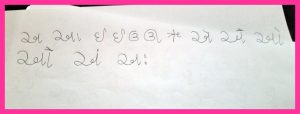 અ આ ઇ ઈ ઉ ઊ ઋ એ ઐ ઓ
ઔ અં અઃ